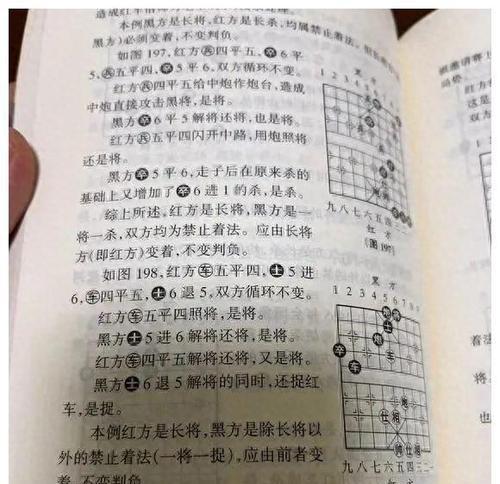 本例黑方是长将,红方是长杀,均属禁止着法。
黑方)必须变着,不变判负。
如图 197,红方兵四平五,卒6平
5,兵五平四,卒5平6,双方循环不变。
红方兵四平五给中炮作炮台,造成
中炮直接攻击黑将,是将。
黑方卒6平5解将还将,也是将。
红方兵五平四闪开中路,用炮照将
还是将。
黑方卒5平6,走子后在原来杀的
基础上又增加了卒6进1的杀,是杀。
综上所述,红方是长将,黑方是一
将一杀,双方均为禁止着法。应由长将
方(即红方)变着,不变判负。
如图 198,红方车五平四,士5进
6,车四平五,士6退5,双方循环不变。
红方车五平四照将,是将。
黑方士5进6解将还将,是将。
红方车四平五解将还将,又是将。
黑方士6退5解将的同时,还捉红
车,是捉。
本例红方是长将,黑方是除长将以
外的禁止着法(一将一捉),应由前者变
着,不变判负。
黑方
1 2 3 4 5 6 7 8 9
九八七六五四三二一
红方
(图197)
黑方
1 2 3 4 5 6 7 8 9
炮 将
士
炮
卒 车
车
炮
仕 相
帅 仕 相
九八七六五四三二一